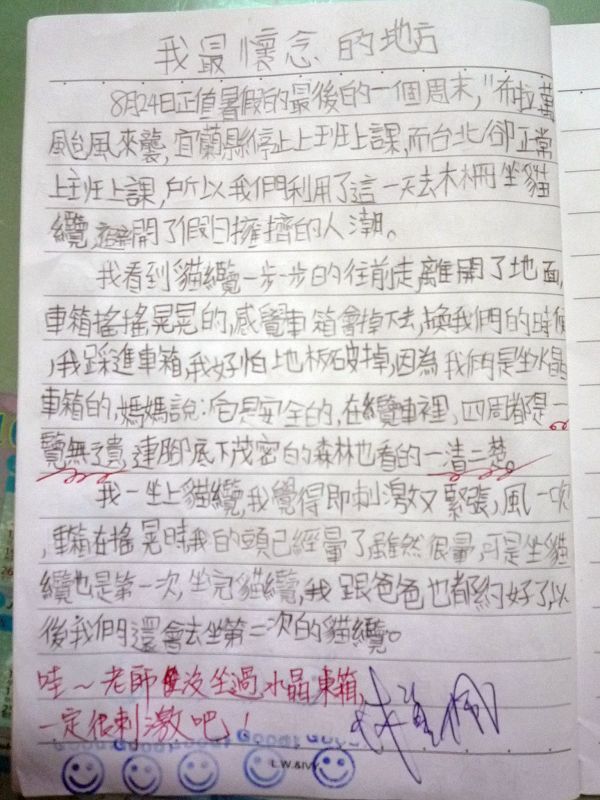 我最懷念的地方
8月24日正值暑假的最後的一個周末,"布拉萬
颱風來襲,宜蘭縣停止上班上課,而台北卻正常
上班上課,所以我們利用了這一天去木柵坐貓
纜,避開了假日擁擠的人潮。
我看到貓纜一步一步的往前走,離開了地面,
車箱搖搖晃晃的,感覺車箱會掉下去,換我們的時候
,我踩進車箱,我好怕地板破掉,因為我們是坐水晶
車箱的,媽媽說:它是安全的,在纜車裡,四周都是一
覽無遺,連腳底下茂密的森林也看的一清二楚。
我一坐上貓纜,我覺得即刺激又緊張,風一吹
,車箱在搖晃時我的頭已經暈了雖然很暈,可是坐貓
纜也是第一次,坐完貓纜,我跟爸爸也都約好了,以
後我們還會去坐第二次的貓纜。
哇~老師沒坐過水晶車箱,
一定很刺激吧!
Good! Good! Good! Good! Good!
L.W.&IVY